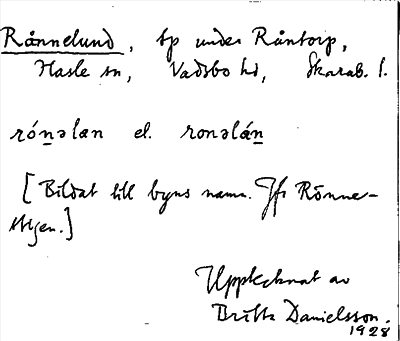 Rånnelund, tp under Råntorp,
Hasle sn, Vadsbo hd, Skarab. l.
rónəlan el. ronəlán
[Bildat till byns namn. Jfr Rönne-
stigen.]
Upptecknat av
Britta Danielsson.
1928